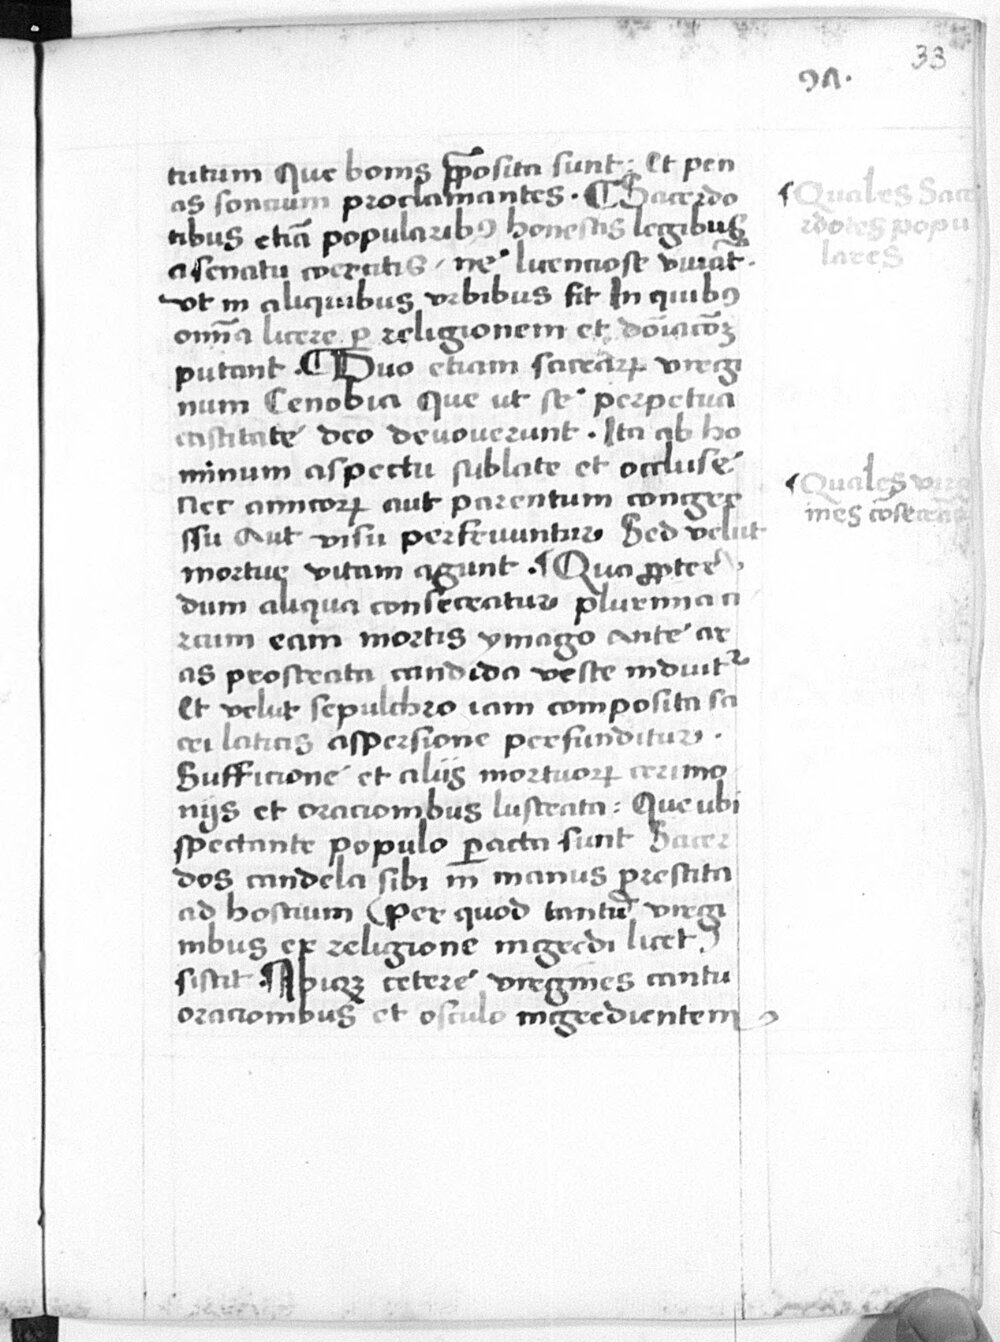 33
tutum Que bonis ꝓposita sunt: Et pen
as sontium proclamantes. ¶ Sacerdo
tibus etiā popularibꝯ honestis legibus
a senatu coercitis / ne licenciose viuāt.
vt in aliquibus vrbibus fit In quibꝯ
omīa licere ꝑ religionem et
putant. ¶ Duo etiam sacraꝝ virgi
num Cenobia Que ut se perpetua
castitate deo deuouerunt. Ita ab ho
minum aspectu sublate et occluse
nec amicoꝝ aut parentum congre
ssu Aut visu perfruuntur Sed velut
mortue vitam agunt. ¶ Qua ꝓpter
dum aliqua consecratur plurima ci
rcum eam mortis ymago Ante ar
as prostrata candida veste induitᷣ
Et velut sepulchro iam composita sa
cri laticis aspersione perfunditur.
Suffitione et aliis mortuoꝝ cerimo
nijs et oracionibus lustrata: Que ubi
spectante populo ꝑacta sunt Sacer
dos candela sibi in manus prestita
ad hostium (Per quod tantū virgi
nibus ex religione ingredi licet)
sistit. Abiqꝫ cetere virgines cantu
oracionibus et osculo ingredientem
¶ Quales Sace
rdotes popu
lares
¶ Quales virg
ines cōsecran